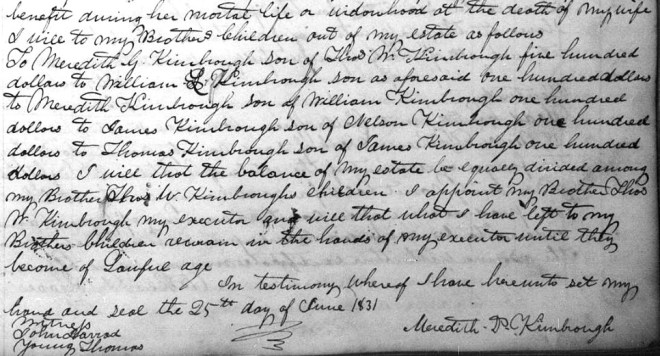 benefit during her mortal life or widowhood at the death of my wife
I will to my Brothers Children out of my estate as follows
To Meredith G. Kimbrough son of Thos W. Kimbrough five hundred
dollars to William L Kimbrough son as aforesaid one hundred dollars
to Meredith Kimbrough son of William Kimbrough one hundred
dollars to James Kimbrough son of Nelson Kimbrough one hundred
dollars to Thomas Kimbrough son of James Kimbrough one hundred
dollars I will that the balance of my estate be equally divided among
my Brother Thos W. Kimbroughs children. I appoint my Brother Thos
W. Kimbrough my executor and will that what I have left to my
Brothers Children remain in the hands of my executor until they
become of Lawful age
In testimony whereof I have hereunto set my
hand and seal the 25th day of June 1831
Witness
John Harrod
Young Thomas
Meredith Kimbrough